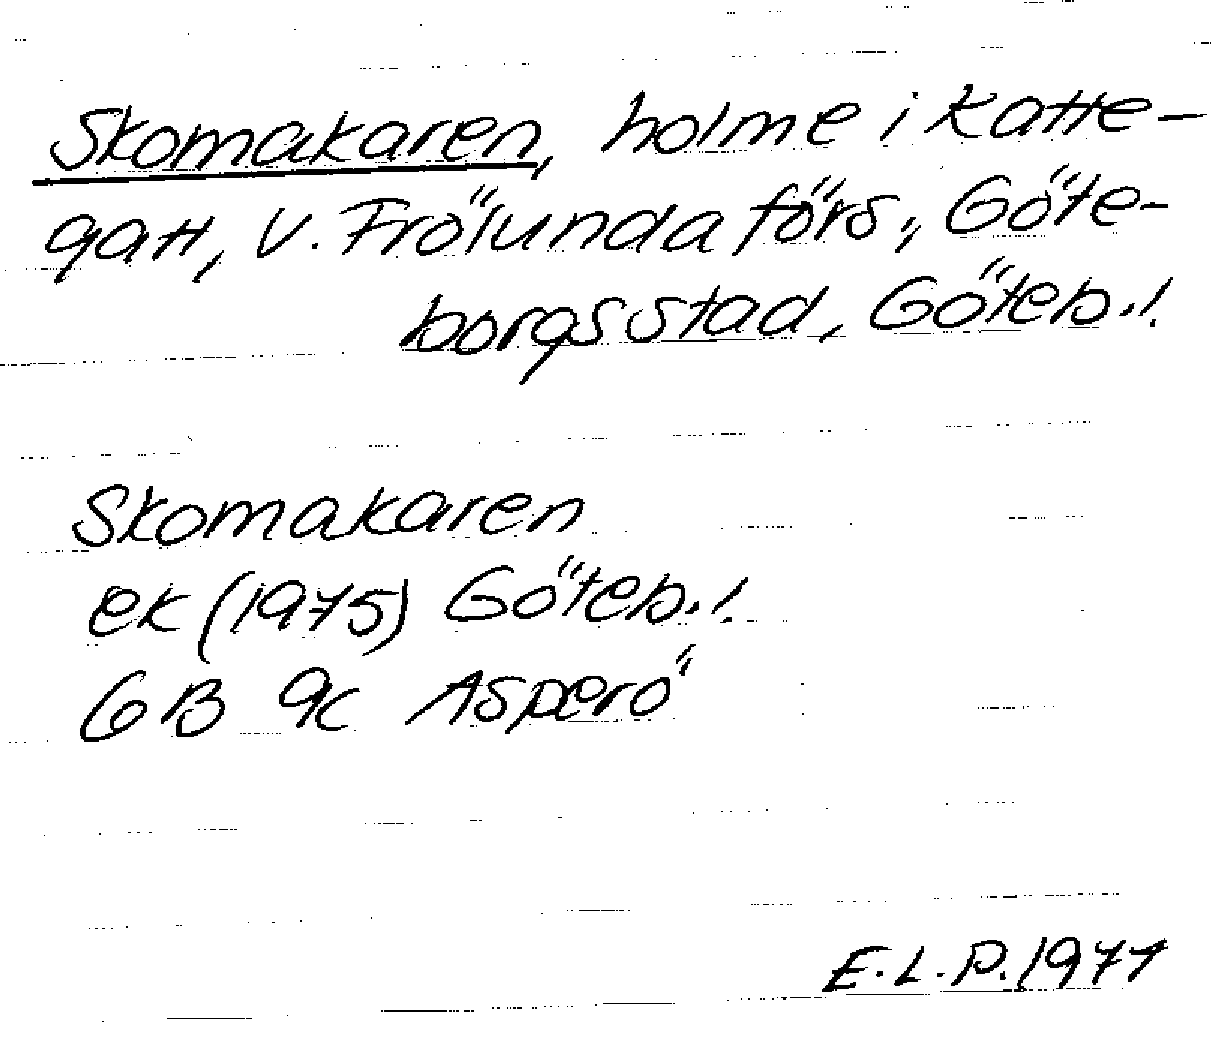 Skomakaren, holme i Katte-
gatt, V. Frölunda förs., Göte-
borgs stad, Göteb. l.
Skomakaren
ek (1975) Göteb. l.
GB 9c Asperö
E.L.P. 1977